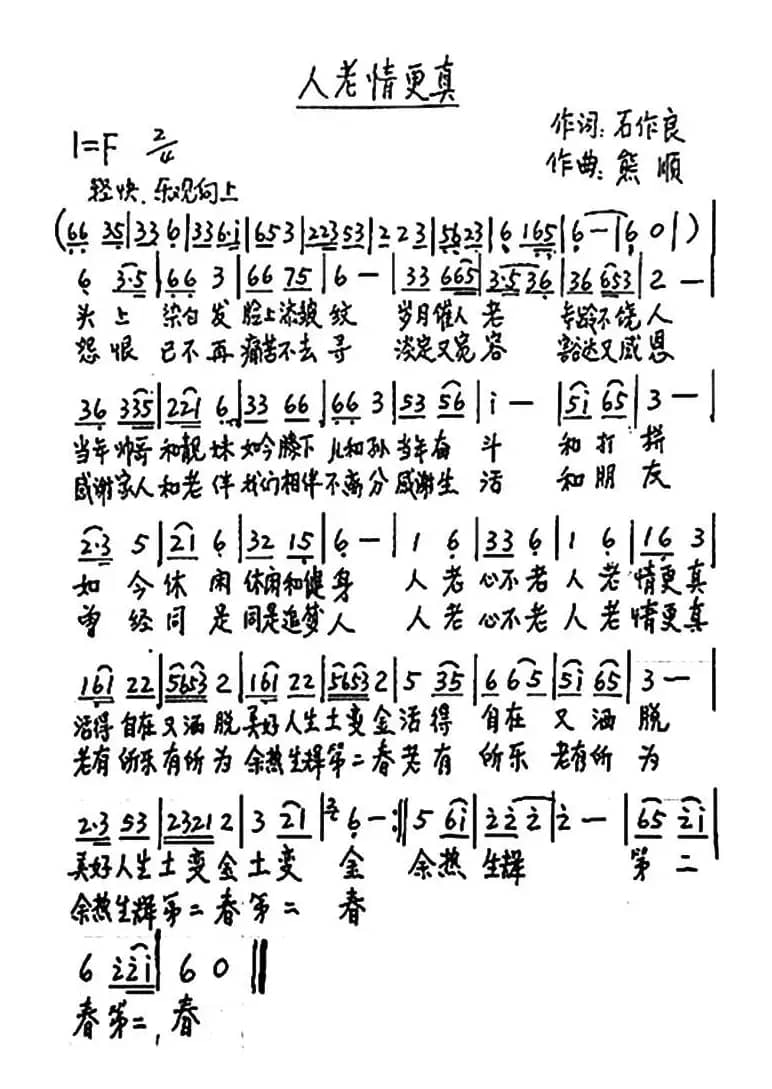 人老情更真
作词:石作良
1=F 2/4
作曲:熊顺
轻快、乐观向上
(66 35|33 6|336·i|653|22353|223|5623|6 165|6-|60|)
6 3·5|66 3|66 75|6 -|33 665|3·5 36|36 653|2 -|
头上 染白发 脸上添皱纹 岁月催人老 年龄不饶人
怨恨 已不再 痛苦不去寻 淡定又宽容 豁达又感恩
36 335|221 6|33 66|66 3|53 56|i -|5i 65|3 -|
当年帅哥和靓妹如今膝下儿和孙当年奋斗 和打拼
感谢家人和老伴我们相伴不离分感谢生活 和朋友
2·3 5|21 6|32 15|6 -|1 6|33 6|1 6|16 3|
如今休闲休闲和健身 人老心不老人老情更真
曾经同是同是追梦人 人老心不老人老情更真
161 22|5653 2|161 22|5653 2|5 35|6 65|5i 65|3 -|
活得自在又洒脱美好人生土变金活得 自在 又洒脱
老有所乐有所为余热生辉第二春老有 所乐 老有所为
2·3 53|2321 2|3 21|3/4 6 -:||5 6i|2 2 2|2 -|65 2i|
美好人生土变金土变 金 余热生辉 第二
余热生辉第二春第二 春
6 22i|6 0||
春第二,春